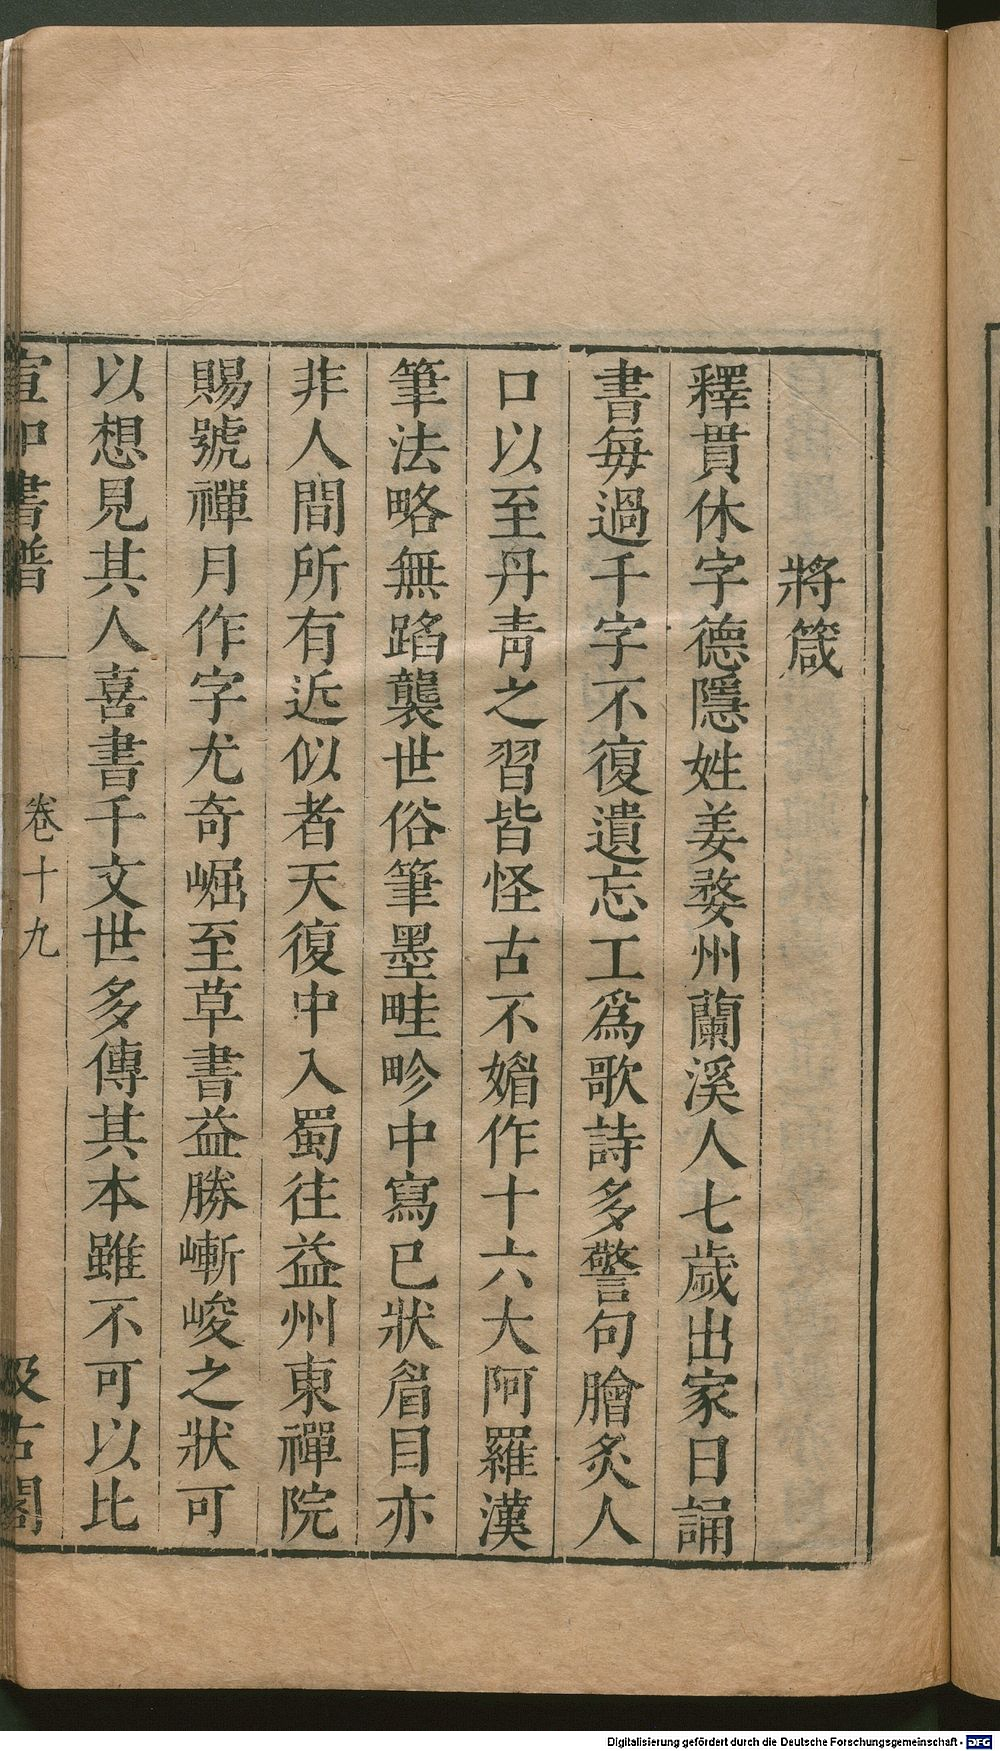 將箴
釋貫休字德隱姓姜婺州蘭溪人七歲出家日誦
書每過千字不復遺忘工爲歌詩多警句膾炙人
口以至丹青之習皆怪古不媚作十六大阿羅漢
筆法略無蹈襲世俗筆墨畦畛中寫已狀眉目亦
非人間所有近似者天復中入蜀往益州東禪院
賜號禪月作字尤奇崛至草書益勝嶄峻之狀可
以想見其人喜書千文世多傳其本雖不可以比
宣和書譜 卷十九 汲古閣
Digitalisierung gefördert durch die Deutsche Forschungsgemeinschaft - DFG